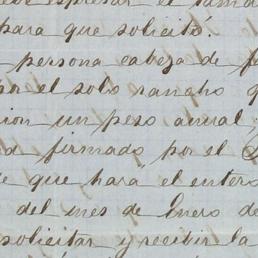 para que solicitó.
persona cabeza de
por el solo rancho
un peso anual
firmado por el
que hará el entero
del mes de Enero de
solicitar y recibir la